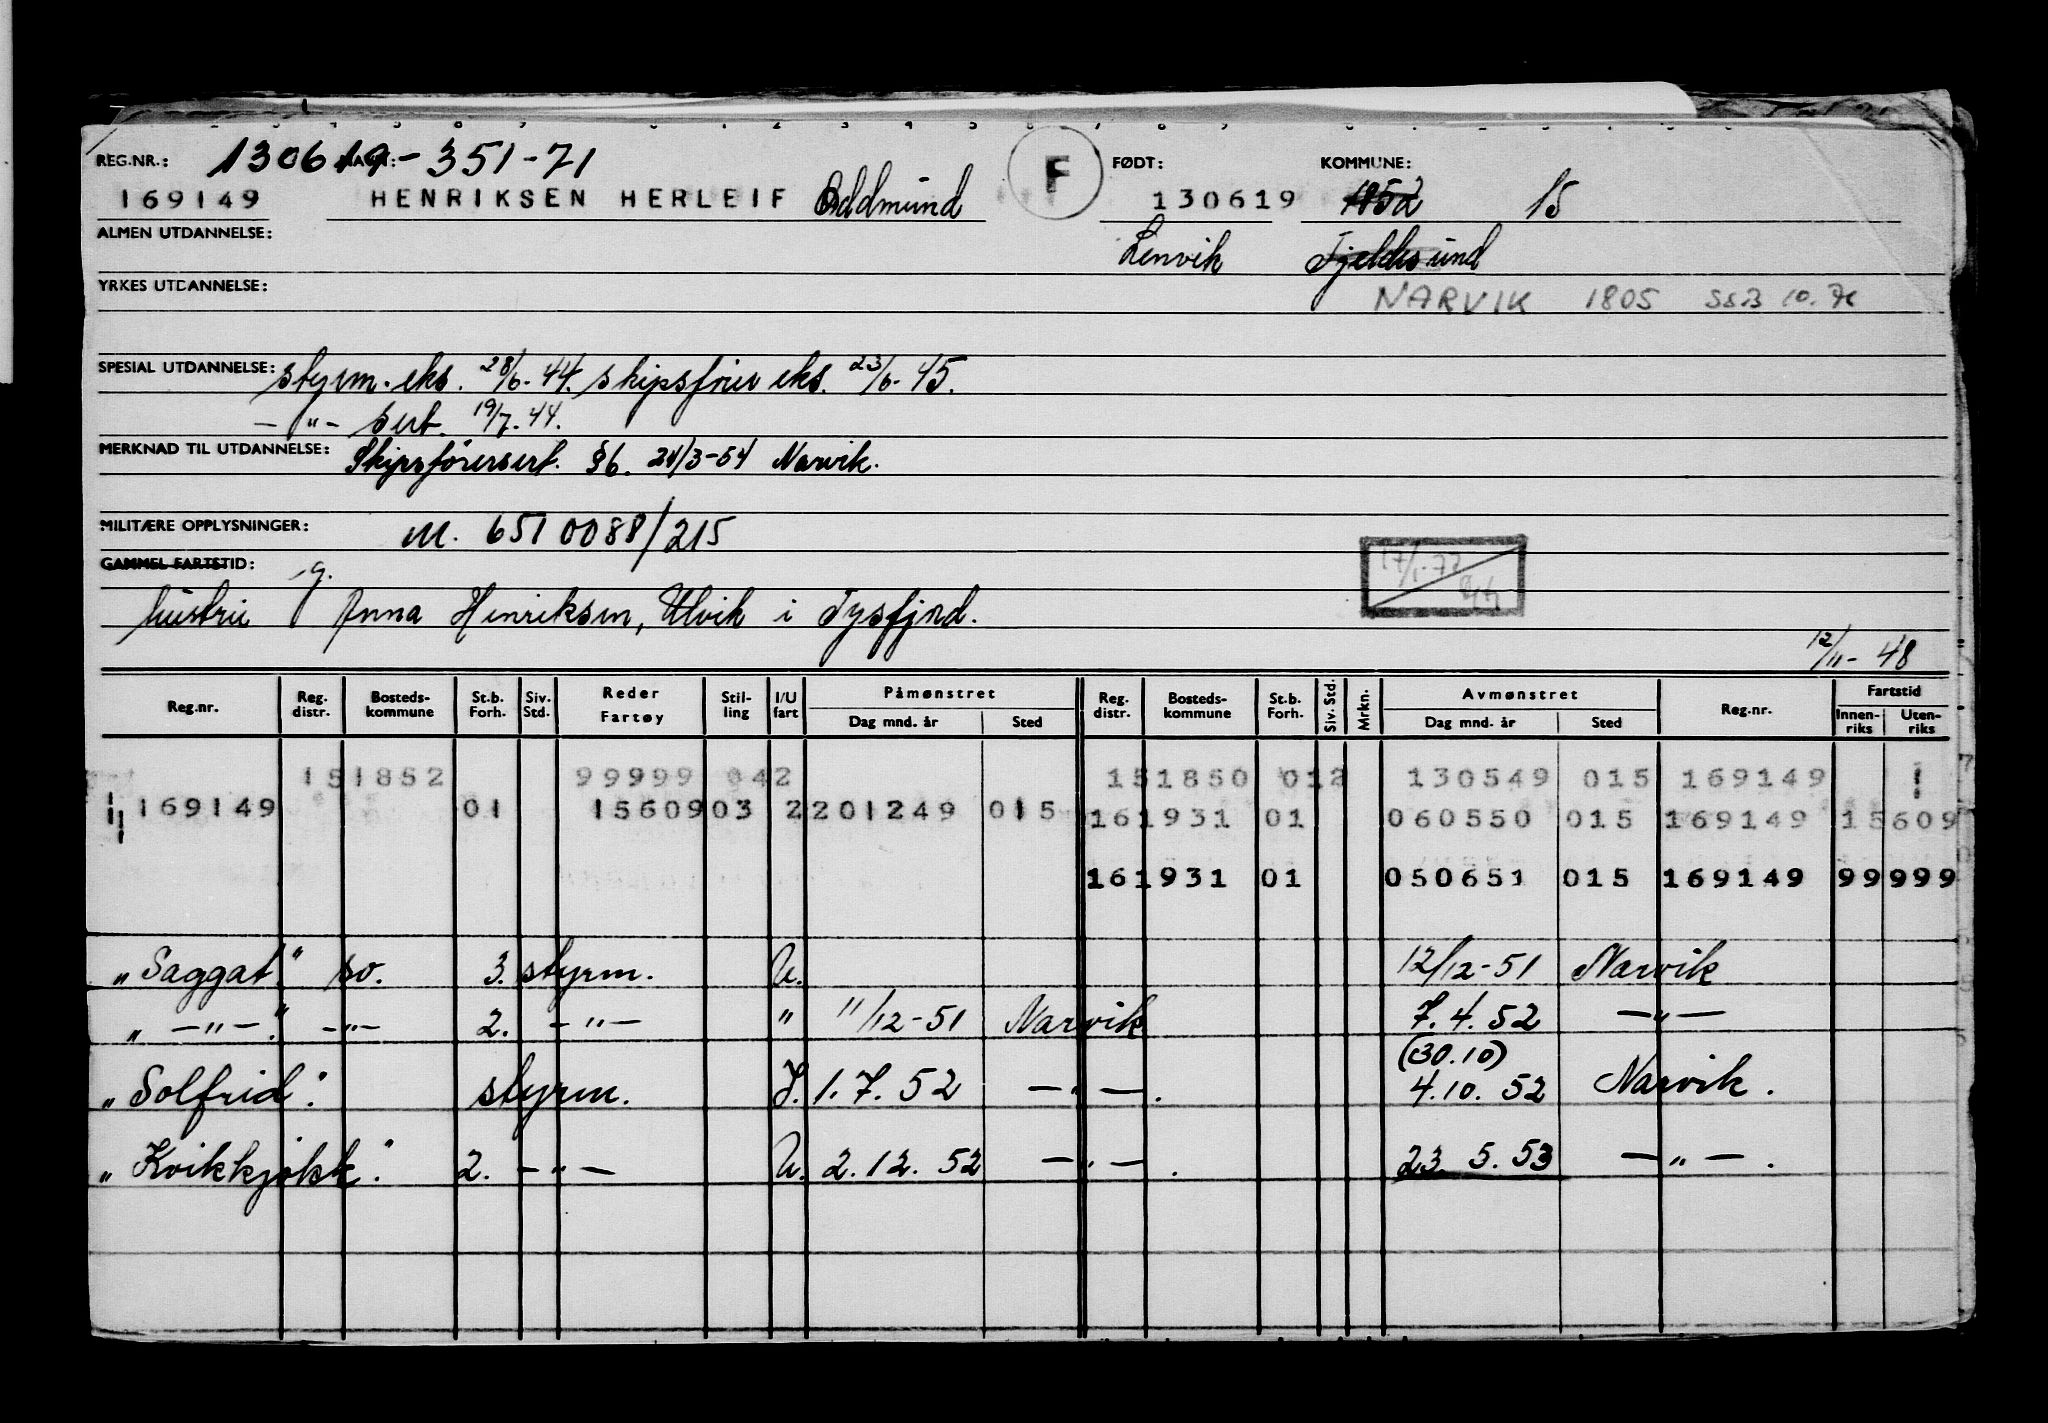 REG.NR.: 130619-351-71 F FØDT: KOMMUNE:
169149 HENRIKSEN HERLEIF Oddmund 130619 1852 15
ALMEN UTDANNELSE: Lenvik Tjeldsund
YRKES UTDANNELSE: NARVIK 1805
SPESIAL UTDANNELSE: styrm. eks. 28/6-44. skipsfører eks. 23/6-45.
-"- sert. 19/7.44.
MERKNAD TIL UTDANNELSE: Skipsførersert. §6. 24/3-54 Narvik.
MILITÆRE OPPLYSNINGER: M. 6510088/215
GAMMEL FARTSTID: 17/1-72
g.
hustru Anna Henriksen, Ulvik i Tysfjord.
12/11-48
Reg.nr. Reg. distr. Bosteds-kommune St.b. Forh. Siv. Std. Reder Fartøy Stil-ling I/U fart Påmønstret Dag mnd. år Sted Reg. distr. Bosteds-kommune St.b. Forh. Siv. Std. Mrkn. Avmønstret Dag mnd. år Sted Reg.nr. Fartstid Innen-riks Uten-riks
151852 99999 042 151850 012 130549 015 169149
169149 01 15609 03 2 201249 015 161931 01 060550 015 169149 15609
161931 01 050651 015 169149 99999
"Saggat" so. 3. styrm. U. 12/12-51 Narvik
"-"-." -"- 2. -"- " 11/12-51 Narvik 7.4.52 -"-
(30.10)
"Solfrid". styrm. I. 1.7.52 -"-. 4.10.52 Narvik.
"Kvikkjokk". 2. -"- U. 2.12.52 -"-. 23.5.53 -"-.